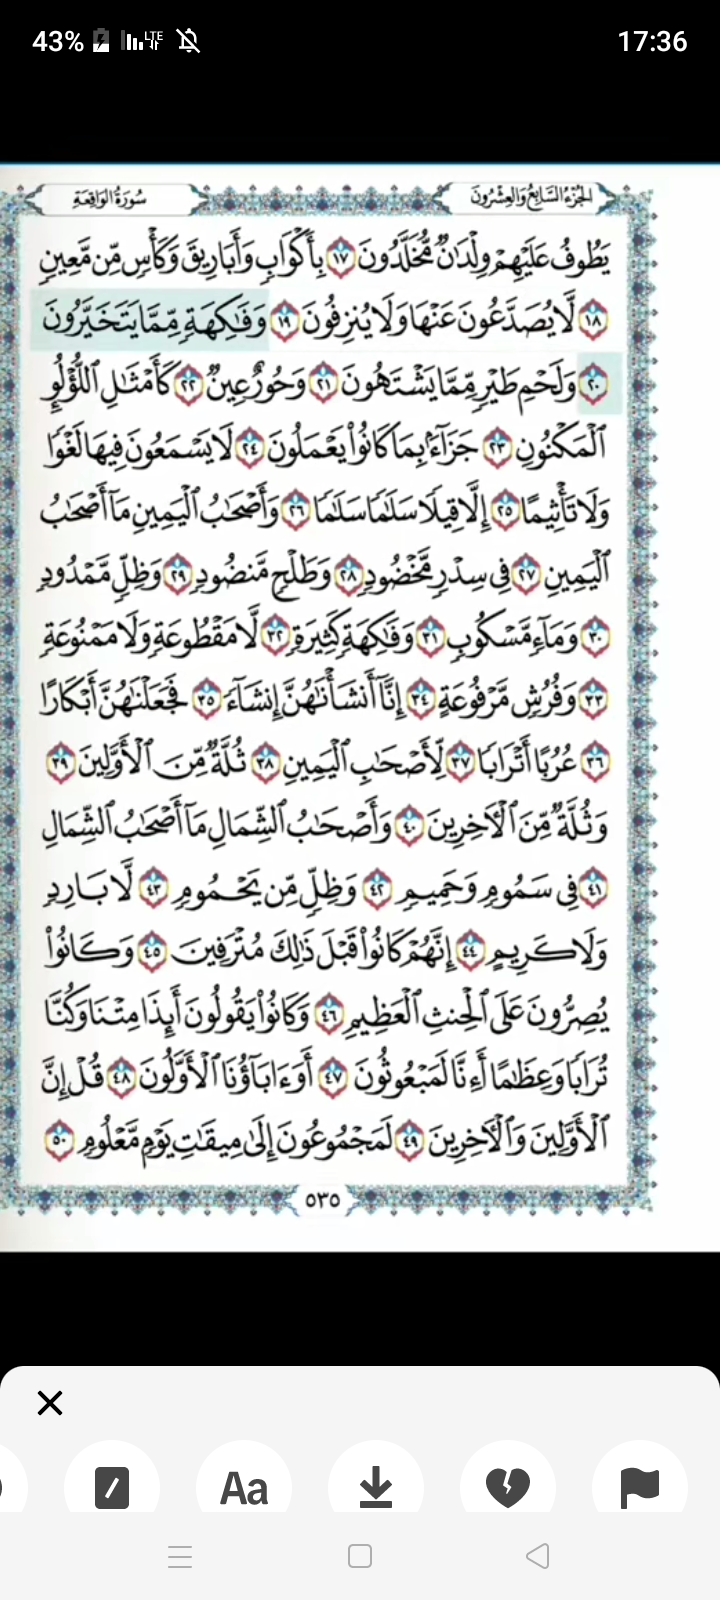 43% LTE 17:36
الجزء السابع والعشرون سورة الواقعة
يَطُوفُ عَلَيْهِمْ وِلْدَٰنٌ مُّخَلَّدُونَ ١٧ بِأَكْوَابٍ وَأَبَارِيقَ وَكَأْسٍ مِّن مَّعِينٍ
١٨ لَّا يُصَدَّعُونَ عَنْهَا وَلَا يُنزِفُونَ ١٩ وَفَٰكِهَةٍ مِّمَّا يَتَخَيَّرُونَ
٢٠ وَلَحْمِ طَيْرٍ مِّمَّا يَشْتَهُونَ ٢١ وَحُورٌ عِينٌ ٢٢ كَأَمْثَٰلِ ٱللُّؤْلُؤِ
ٱلْمَكْنُونِ ٢٣ جَزَآءًۢ بِمَا كَانُوا۟ يَعْمَلُونَ ٢٤ لَا يَسْمَعُونَ فِيهَا لَغْوًا
وَلَا تَأْثِيمًا ٢٥ إِلَّا قِيلًا سَلَٰمًا سَلَٰمًا ٢٦ وَأَصْحَٰبُ ٱلْيَمِينِ مَآ أَصْحَٰبُ
ٱلْيَمِينِ ٢٧ فِى سِدْرٍ مَّخْضُودٍ ٢٨ وَطَلْحٍ مَّنضُودٍ ٢٩ وَظِلٍّ مَّمْدُودٍ
٣٠ وَمَآءٍ مَّسْكُوبٍ ٣١ وَفَٰكِهَةٍ كَثِيرَةٍ ٣٢ لَّا مَقْطُوعَةٍ وَلَا مَمْنُوعَةٍ
٣٣ وَفُرُشٍ مَّرْفُوعَةٍ ٣٤ إِنَّآ أَنشَأْنَٰهُنَّ إِنشَآءً ٣٥ فَجَعَلْنَٰهُنَّ أَبْكَارًا
٣٦ عُرُبًا أَتْرَابًا ٣٧ لِّأَصْحَٰبِ ٱلْيَمِينِ ٣٨ ثُلَّةٌ مِّنَ ٱلْأَوَّلِينَ ٣٩
وَثُلَّةٌ مِّنَ ٱلْءَاخِرِينَ ٤٠ وَأَصْحَٰبُ ٱلشِّمَالِ مَآ أَصْحَٰبُ ٱلشِّمَالِ
٤١ فِى سَمُومٍ وَحَمِيمٍ ٤٢ وَظِلٍّ مِّن يَحْمُومٍ ٤٣ لَّا بَارِدٍ
وَلَا كَرِيمٍ ٤٤ إِنَّهُمْ كَانُوا۟ قَبْلَ ذَٰلِكَ مُتْرَفِينَ ٤٥ وَكَانُوا۟
يُصِرُّونَ عَلَى ٱلْحِنثِ ٱلْعَظِيمِ ٤٦ وَكَانُوا۟ يَقُولُونَ أَئِذَا مِتْنَا وَكُنَّا
تُرَابًا وَعِظَٰمًا أَءِنَّا لَمَبْعُوثُونَ ٤٧ أَوَءَابَآؤُنَا ٱلْأَوَّلُونَ ٤٨ قُلْ إِنَّ
ٱلْأَوَّلِينَ وَٱلْءَاخِرِينَ ٤٩ لَمَجْمُوعُونَ إِلَىٰ مِيقَٰتِ يَوْمٍ مَّعْلُومٍ ٥٠
٥٣٥
Aa